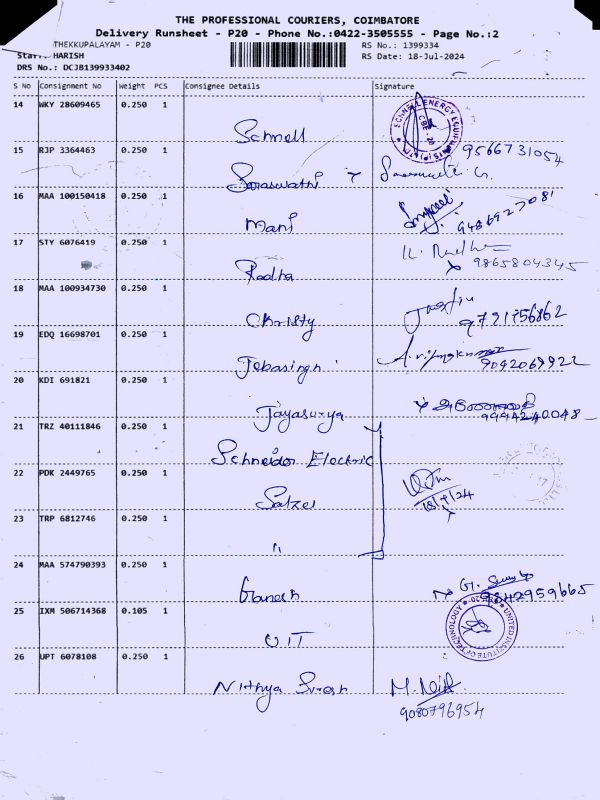 THE PROFESSIONAL COURIERS, COIMBATORE
Delivery Runsheet - P20 - Phone No.:0422-3505555 - Page No.:2
THEKKUPALAYAM - P20 RS No.: 1399334
Staff HARISH RS Date: 18-Jul-2024
DRS No.: DCJB139933402
S No Consignment No Weight PCS Consignee Details Signature
14 WKY 28609465 0.250 1
Schnell
15 RJP 3364463 0.250 1 9566731054
Saraswathi
16 MAA 100150418 0.250 1
Mani 9486927081
17 STY 6076419 0.250 1
Radha 9865804345
18 MAA 100934730 0.250 1
Christy 9791756862
19 EDQ 16698701 0.250 1
Jebasingh 9092069922
20 KDI 691821 0.250 1
Jayasurya 9994240048
21 TRZ 40111846 0.250 1
Schneider Electric
22 PDK 2449765 0.250 1
Salzer 18/7/24
23 TRP 6812746 0.250 1
"
24 MAA 574790393 0.250 1
Ganesh 9842959665
25 IXM 506714368 0.105 1
UIT UNITED INSTITUTE OF TECHNOLOGY
26 UPT 6078108 0.250 1
Nithya Suresh
9080796954